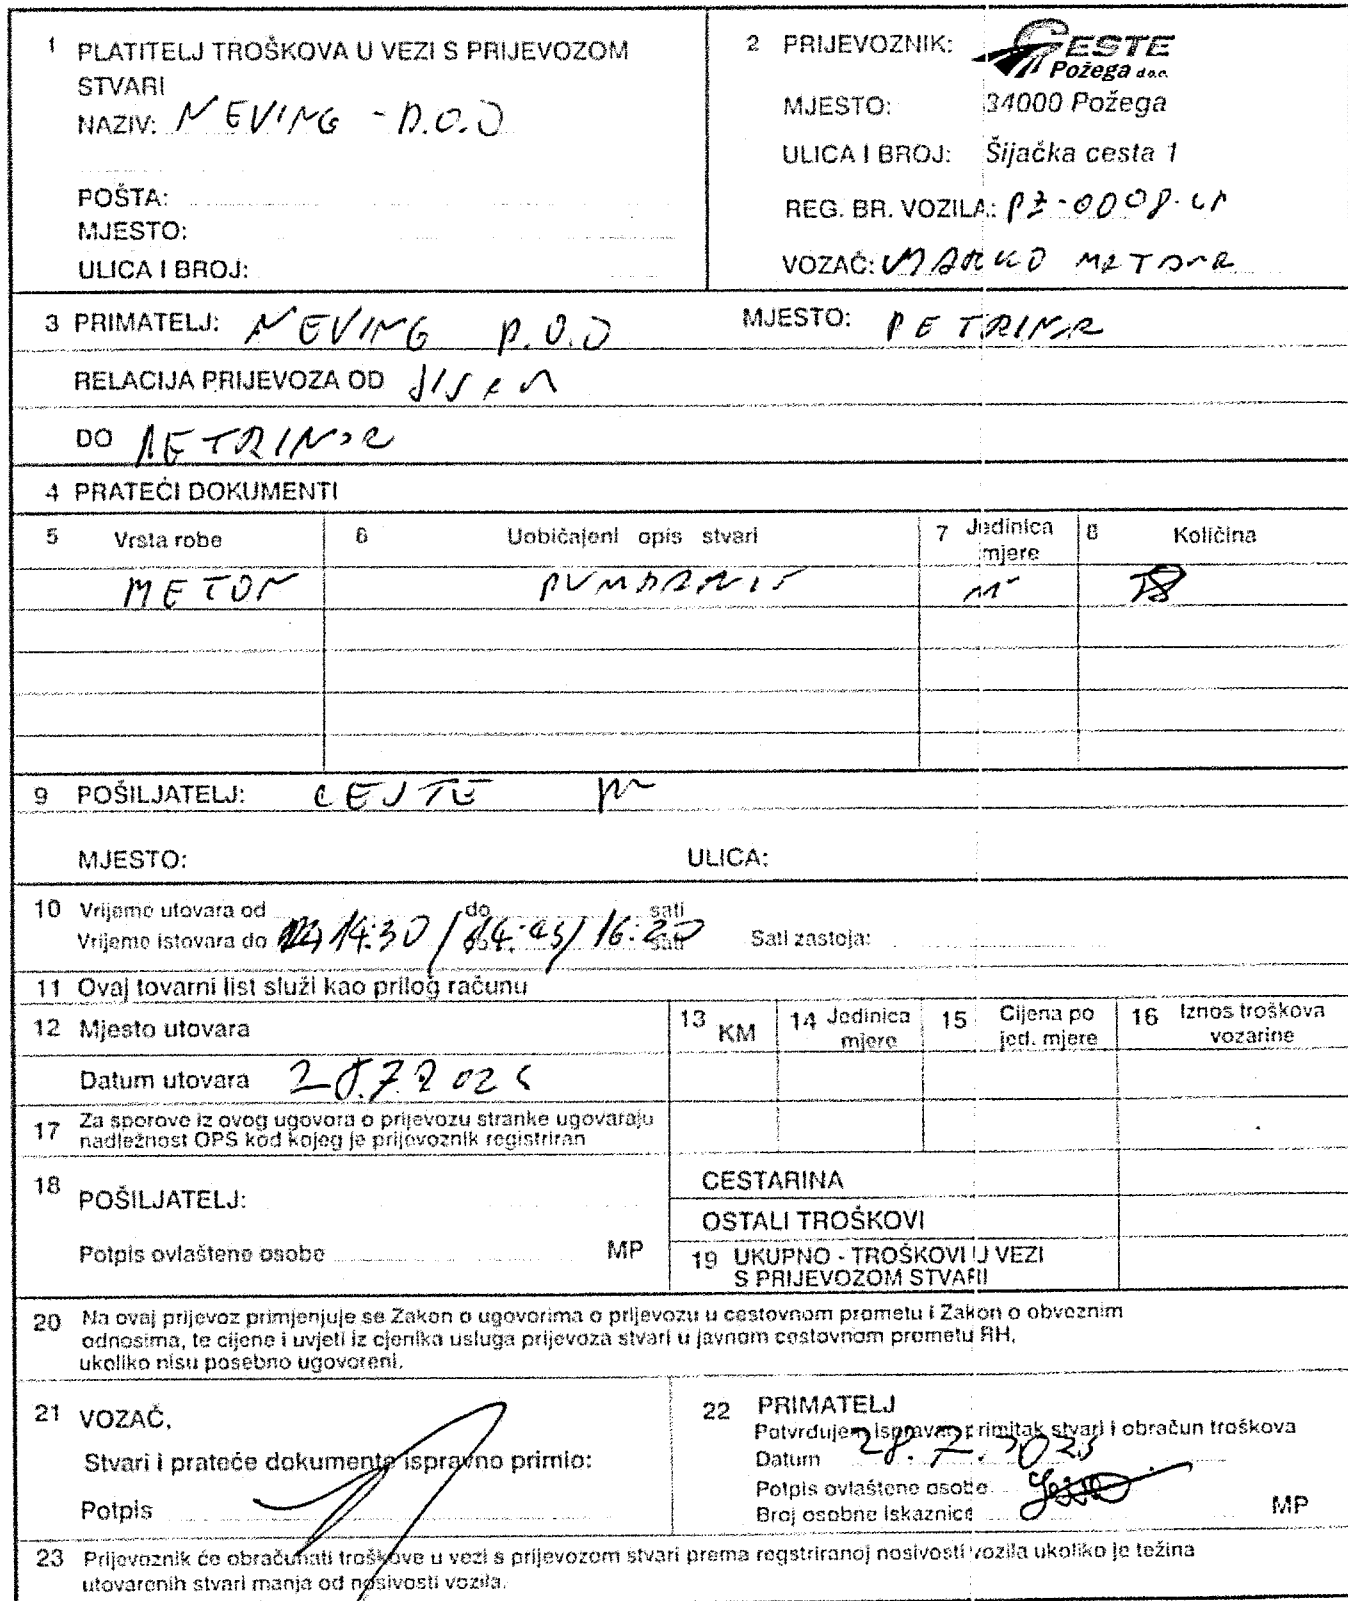 1 PLATITELJ TROŠKOVA U VEZI S PRIJEVOZOM
STVARI
NAZIV: NEVING - D.O.O
POŠTA:
MJESTO:
ULICA I BROJ:
2 PRIJEVOZNIK: CESTE
Požega d.o.o.
MJESTO: 34000 Požega
ULICA I BROJ: Šijačka cesta 1
REG. BR. VOZILA:
VOZAČ: MARKO
3 PRIMATELJ: NEVING D.O.O MJESTO: PETRINJA
RELACIJA PRIJEVOZA OD SISAK
DO PETRINJA
4 PRATEĆI DOKUMENTI
5 Vrsta robe 6 Uobičajeni opis stvari 7 Jedinica mjere 8 Količina
BETON PUMPANJE
9 POŠILJATELJ: CESTE
MJESTO: ULICA:
10 Vrijeme utovara od do sati
Vrijeme istovara do 14:30 / 14:45 / 16:20 sati Sati zastoja:
11 Ovaj tovarni list služi kao prilog računu
12 Mjesto utovara 13 KM 14 Jedinica mjere 15 Cijena po jed. mjere 16 Iznos troškova vozarine
Datum utovara 28.7.2025
17 Za sporove iz ovog ugovora o prijevozu stranke ugovaraju
nadležnost OPS kod kojeg je prijevoznik registriran
18 POŠILJATELJ:
Potpis ovlaštene osobe MP
CESTARINA
OSTALI TROŠKOVI
19 UKUPNO - TROŠKOVI U VEZI
S PRIJEVOZOM STVARI
20 Na ovaj prijevoz primjenjuje se Zakon o ugovorima o prijevozu u cestovnom prometu i Zakon o obveznim
odnosima, te cijene i uvjeti iz cjenika usluga prijevoza stvari u javnom cestovnom prometu RH,
ukoliko nisu posebno ugovoreni.
21 VOZAČ,
Stvari i prateće dokumente ispravno primio:
Potpis
22 PRIMATELJ
Potvrđujem ispravan primitak stvari i obračun troškova
Datum 28.7.2025
Potpis ovlaštene osobe
Broj osobne iskaznice MP
23 Prijevoznik će obračunati troškove u vezi s prijevozom stvari prema regstriranoj nosivosti vozila ukoliko je težina
utovarenih stvari manja od nosivosti vozila.